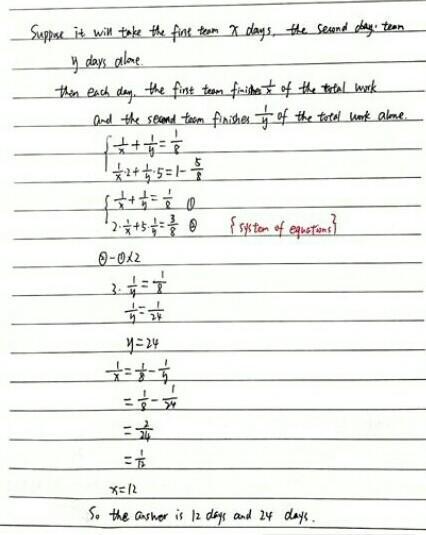 Suppose it will take the first team x days, the second team
y days alone.
then each day, the first team finishes 1/x of the total work
and the second team finishes 1/y of the total work alone.
{ 1/x + 1/y = 1/8
1/x·2 + 1/y·5 = 1 - 5/8
{ 1/x + 1/y = 1/8 ①
2·1/x + 5·1/y = 3/8 ② {system of equations}
② - ① x2
3·1/y = 1/8
1/y = 1/24
y = 24
1/x = 1/8 - 1/y
= 1/8 - 1/24
= 2/24
= 1/12
x = 12
So the answer is 12 days and 24 days.